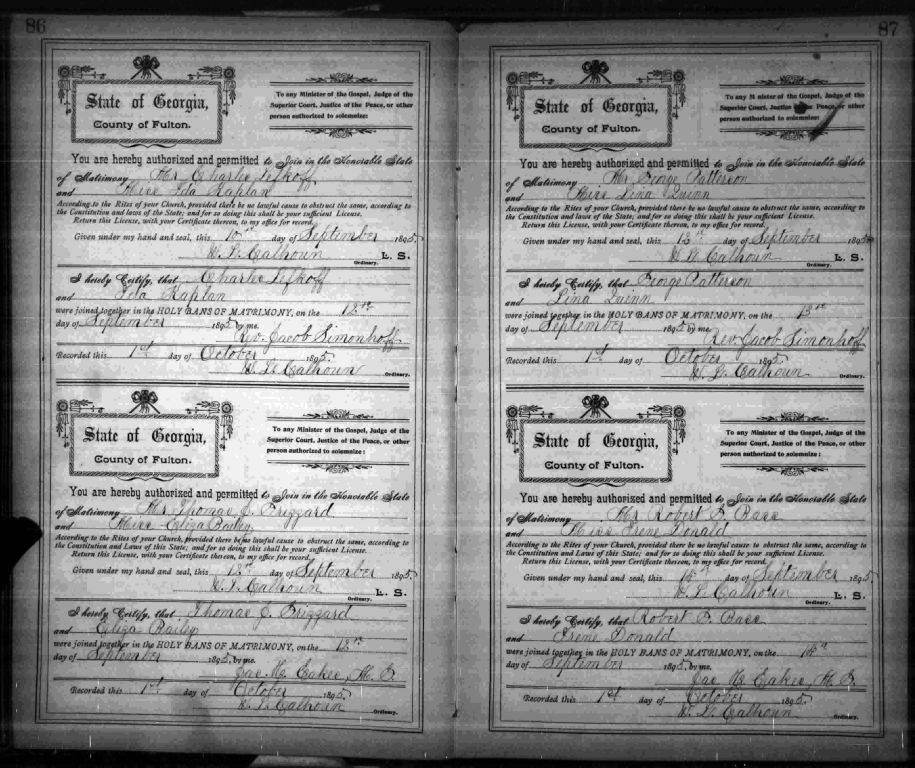 86
State of Georgia,
County of Fulton.
To any Minister of the Gospel, Judge of the
Superior Court, Justice of the Peace, or other
person authorized to solemnize:
You are hereby authorized and permitted to Join in the Honorable State
of Matrimony Mr Charlie Lefkoff
and Miss Ida Kaplan
According to the Rites of your Church, provided there be no lawful cause to obstruct the same, according to
the Constitution and laws of the State; and for so doing this shall be your sufficient License.
Return this License, with your Certificate thereon, to my office for record.
Given under my hand and seal, this 10th day of September 1895
W. L. Calhoun L. S.
Ordinary.
I hereby Certify, that Charlie Lefkoff
and Ida Kaplan
were joined together in the HOLY BANS OF MATRIMONY, on the 12th
day of September 1895 by me.
Rev. Jacob Simonhoff
Recorded this 1st day of October 1895.
W. L. Calhoun Ordinary.
State of Georgia,
County of Fulton.
To any Minister of the Gospel, Judge of the
Superior Court, Justice of the Peace, or other
person authorized to solemnize:
You are hereby authorized and permitted to Join in the Honorable State
of Matrimony Mr Thomas J. Brizzard
and Miss Eliza Bailey
According to the Rites of your Church, provided there be no lawful cause to obstruct the same, according to
the Constitution and Laws of this State; and for so doing this shall be your sufficient License.
Return this License, with your Certificate thereon, to my office for record.
Given under my hand and seal, this 12th day of September 1895
W. L. Calhoun L. S.
Ordinary.
I hereby Certify, that Thomas J. Brizzard
and Eliza Bailey
were joined together in the HOLY BANS OF MATRIMONY, on the 12th
day of September 1895, by me.
Jas. M. Eakes, M. G.
Recorded this 1st day of October 1895.
W. L. Calhoun Ordinary.
87
State of Georgia,
County of Fulton.
To any Minister of the Gospel, Judge of the
Superior Court, Justice of the Peace, or other
person authorized to solemnize:
You are hereby authorized and permitted to Join in the Honorable State
of Matrimony Mr George Patterson
and Miss Lina Quinn
According to the Rites of your Church, provided there be no lawful cause to obstruct the same, according to
the Constitution and laws of the State; and for so doing this shall be your sufficient License.
Return this License, with your Certificate thereon, to my office for record.
Given under my hand and seal, this 13th day of September 1895
W. L. Calhoun L. S.
Ordinary.
I hereby Certify, that George Patterson
and Lina Quinn
were joined together in the HOLY BANS OF MATRIMONY, on the 13th
day of September 1895 by me.
Rev. Jacob Simonhoff
Recorded this 1st day of October 1895.
W. L. Calhoun Ordinary.
State of Georgia,
County of Fulton.
To any Minister of the Gospel, Judge of the
Superior Court, Justice of the Peace, or other
person authorized to solemnize:
You are hereby authorized and permitted to Join in the Honorable State
of Matrimony Mr Robert F. Bass
and Miss Irene Donald
According to the Rites of your Church, provided there be no lawful cause to obstruct the same, according to
the Constitution and Laws of this State; and for so doing this shall be your sufficient License.
Return this License, with your Certificate thereon, to my office for record.
Given under my hand and seal, this 14th day of September 1895
W. L. Calhoun L. S.
Ordinary.
I hereby Certify, that Robert F. Bass
and Irene Donald
were joined together in the HOLY BANS OF MATRIMONY, on the 14th
day of September 1895 by me.
Jas. M. Eakes, M. G.
Recorded this 1st day of October 1895.
W. L. Calhoun Ordinary.